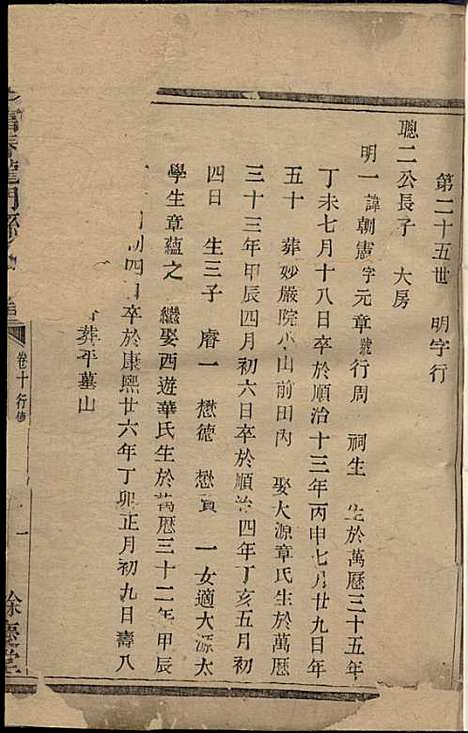 第二十五世　明字行
聰二公長子　大房
明一諱朝憲字元章號行周　祠生　生於萬厯三十五年
丁未七月十八日卒於順治十三年丙申七月廿九日年
五十　葬妙嚴院小山前田內　娶大源章氏生於萬厯
三十三年甲辰四月初六日卒於順治四年丁亥五月初
四日　生三子　睿一　懋德　懋賞　一女適大源太
學生章蘊之　繼娶西遊華氏生於萬厯三十二年甲辰
四　卒於康熙廿六年丁卯正月初九日壽八
葬平墓山
卷十行傳
一
餘慶堂